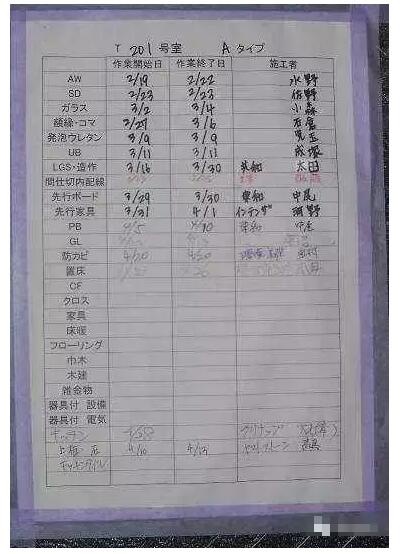 T 201号室 Aタイプ
作業開始日 作業終了日 施工者
AW 2/19 2/22 水野
SD 2/23 2/23 佐野
ガラス 3/2 3/4 小森
額縁・コマ 2/27 3/6 石倉
発泡ウレタン 3/9 3/9 児玉
UB 3/11 3/11 成塚
LGS・造作 3/16 3/30 共和 太田
間仕切内配線
先行ボード 3/29 3/30 東和 中尾
先行家具 3/31 4/1 河野
PB 4/5 4/10 東和
GL
防カビ 4/20 4/20
置床
CF
クロス
家具
床暖
フローリング
巾木
木建
雑金物
器具付 設備
器具付 電気
キッチン
4/10 4/13
キッチンタイル